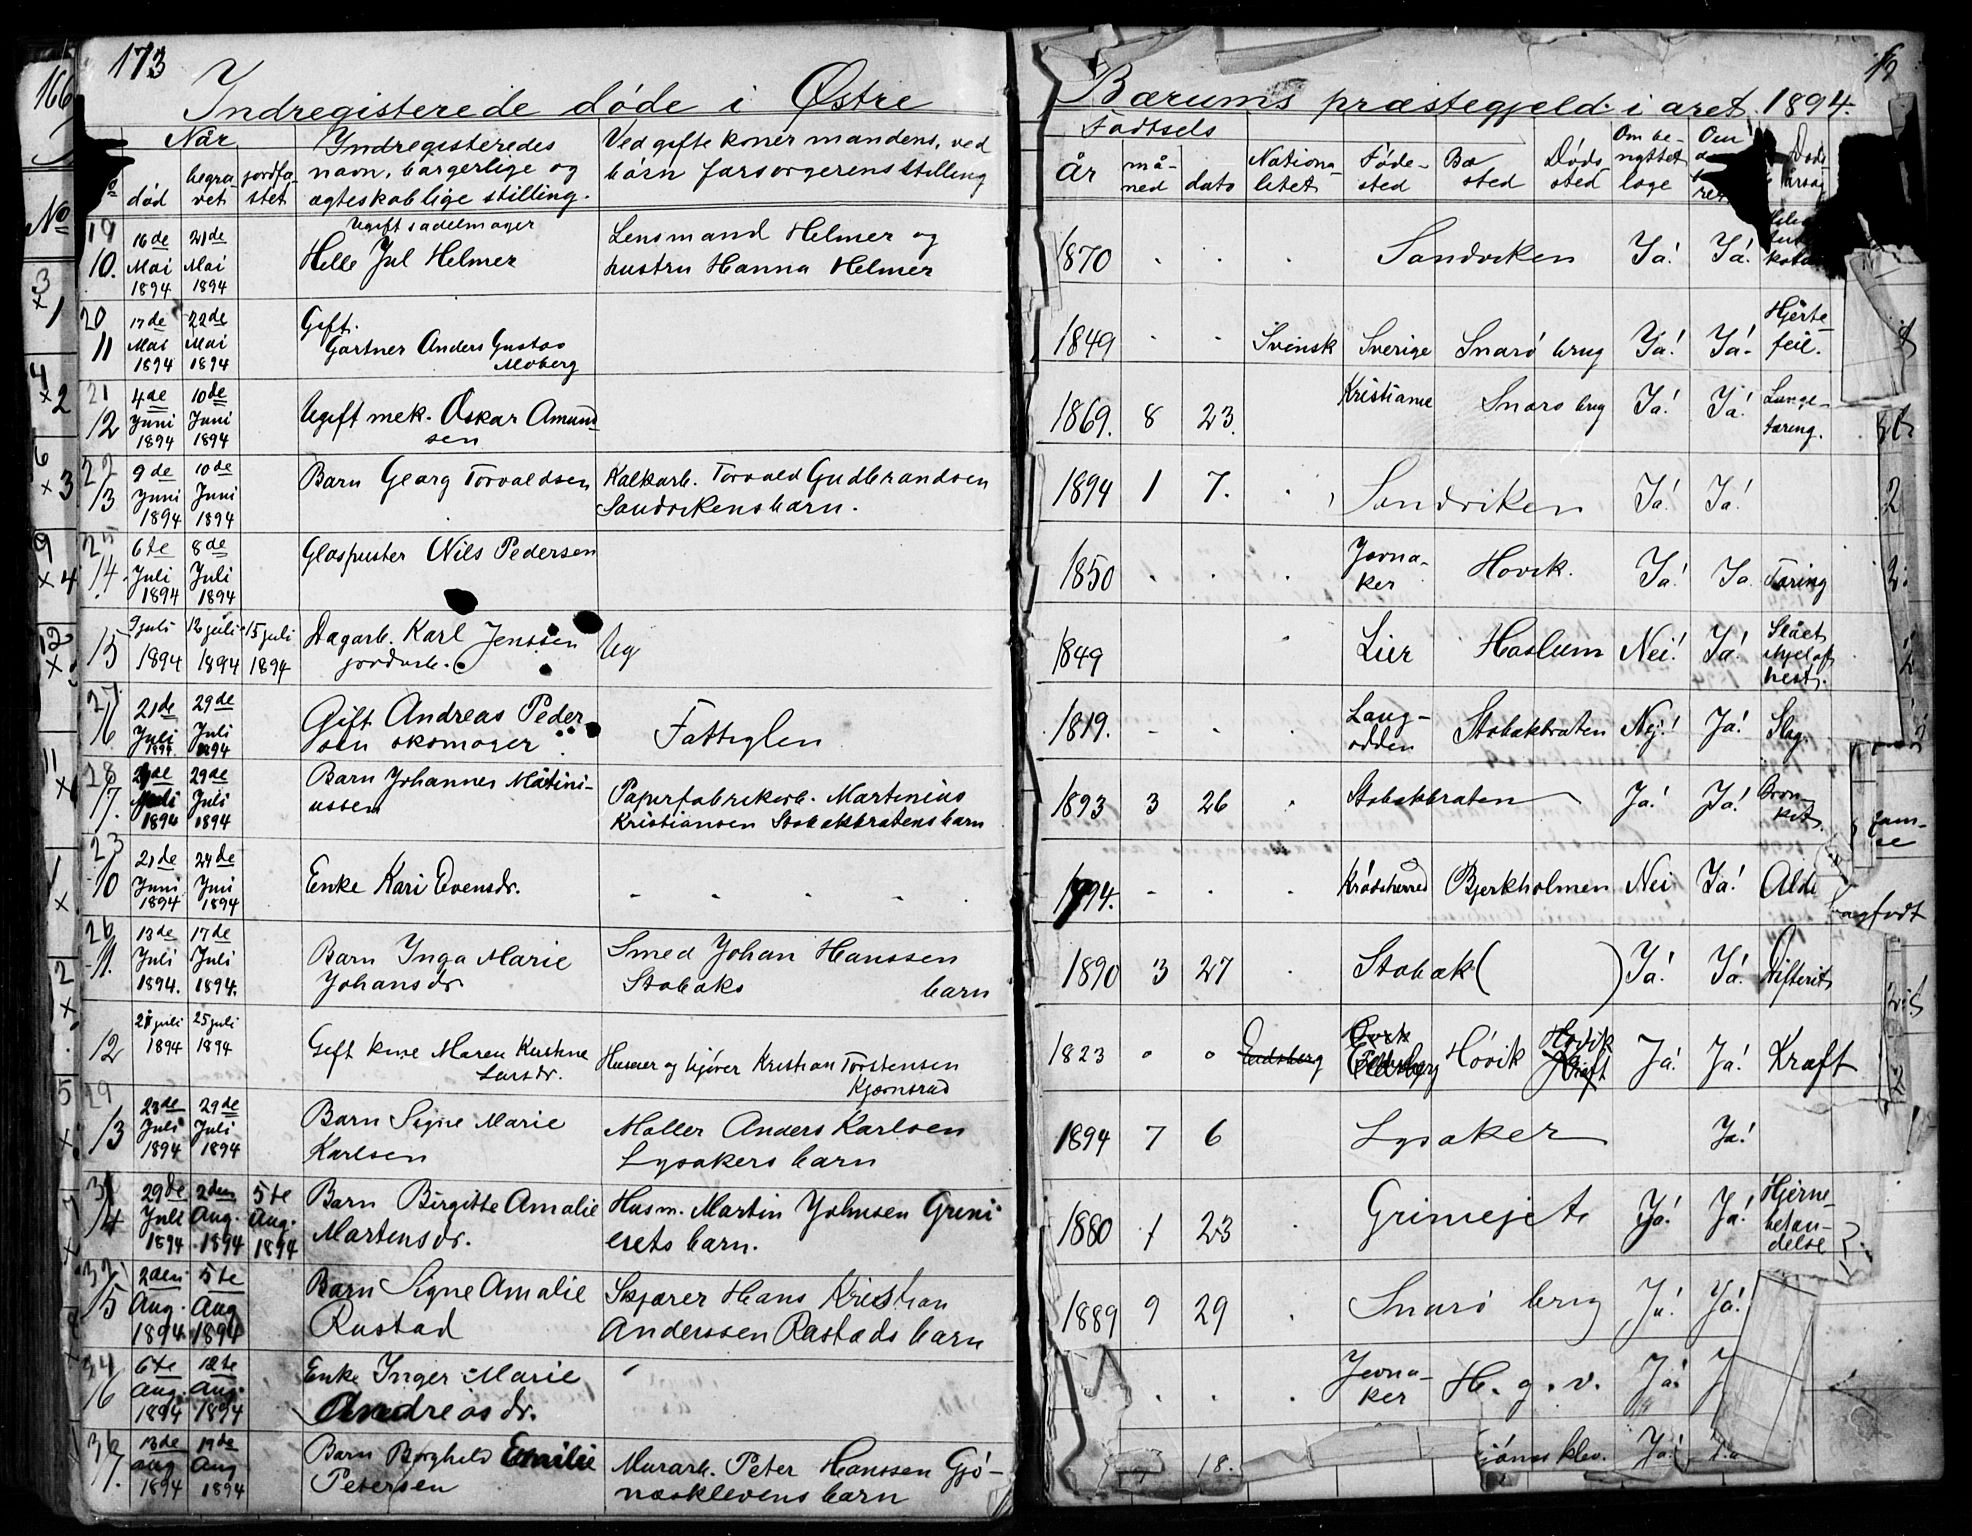 173
166
Indregisterede døde i Østre Bærums præstegjeld i aret 1894.
Når
død
begravet
jordfæstet
Indregisteredes
navn, borgerlige og
ægteskablige stilling.
Ved gifte koner mandens, ved
børn forsorgerens stilling
Fødtsels
År
måned
dato
Nationalitet
Fødested
Bosted
Dødssted
Om benyttet
læge
19
10.
16de
Mai
1894
21de
Mai
1894
Ugift sadelmager
Helle Jul Helmer
Lensmand Helmer og
hustru Hanna Helmer
1870
Sandviken
Ja!
Ja!
20
11
17de
Mai
1894
22de
Mai
1894
Gift.
Gartner Anders Gustav
Moberg
1849
Svensk
Sverige
Snarø brug
Ja!
Ja.
Hjerte-
feil.
21
12
4de
Juni
1894
10de
Juni
1894
Ugift mek. Oskar Amund-
sen
1869.
8
23.
Kristiania
Snarø brug
Ja!
Ja!
Lunge-
tæring.
22
13
9de
Juni
1894
10de
Juni
1894
Barn Georg Torvaldsen
Kalkarb. Torvald Gudbrandsen
Sandvikens barn.
1894
1
7.
Sandviken
Ja!
Ja!
25
14.
6te
Juli
1894
8de
Juli
1894
Glaspuster Nils Pedersen
1850
Jevna-
ker
Høvik.
Ja!
Ja
Tæring
15
9 juli
1894
12 juli
1894
15 juli
1894
Dagarb. Karl Jenssen
jordarb.
Ug
1849
Lier
Haslum
Nei!
Ja!
Slået
ihjel af
hest.
27
16
21de
Juli
1894
29de
Juli
1894
Gift Andreas Peder
sen skomager
Fattiglem
1819.
Lang-
odden
Stabækbraten
Nej!
Ja!
Slag
28
17.
29de
Juli
1894
Barn Johannes Martini-
ussen
Papirfabrikarb. Martinius
Kristiansen Stabækbratens barn
1893
3
26
Stabækbraten
Ja!
Ja!
Bron-
kit.
23
10
21de
Juni
1894
24de
Juni
1894
Enke Kari Evensdr.
1794.
Krødsherred
Bjerkholmen
Nei
Ja!
Alde
26
11.
13de
Juli
1894.
17de
Juli
1894.
Barn Inga Marie
Johansdr
Smed Johan Hanssen
Stabæks barn
1890
3
27
Stabæk ( )
Ja!
Ja!
Difterit
12
21 juli
1894
25 juli
1894
Gift kone Maren Kristine
Larsdr.
Husmer og kjører Kristian Torstensen
Kjørnsrud
1823
Eidsberg
Høvik
Høvik
Ja!
Ja!
Kræft
29
13
23de
Juli
1894
29de
Juli
1894
Barn Signe Marie
Karlsen
Møller Anders Karlsen
Lysakers barn
1894
7
6
Lysaker
Ja!
31
14
29de
Juli
1894
2den
Aug.
1894
5te
Aug.
1894
Barn Birgitte Amalie
Martensdr.
Husm. Martin Johnsen Grini
eiets barn.
1880
1
23
Griniejet
Ja!
Ja!
Hjerne-
betæn-
delse
32
15
2den
Aug.
1894
5te
Aug
1894
Barn Signe Amalie
Rustad
Skjærer Hans Kristian
Anderssen Rustads barn
1889
9
29
Snarø brug
Ja!
Ja!
34
16
6te
Aug.
1894
12te
Aug.
1894
Enke Inger Marie
Andreasdr.
Jevna-
ker
H. g. v.
Ja!
36
17.
13de
Aug
1894
19de
Aug
1894
Barn Borghild Emilie
Petersen
Murarb. Peter Hanssen Gjø-
næsklevens barn
18.
Ja!